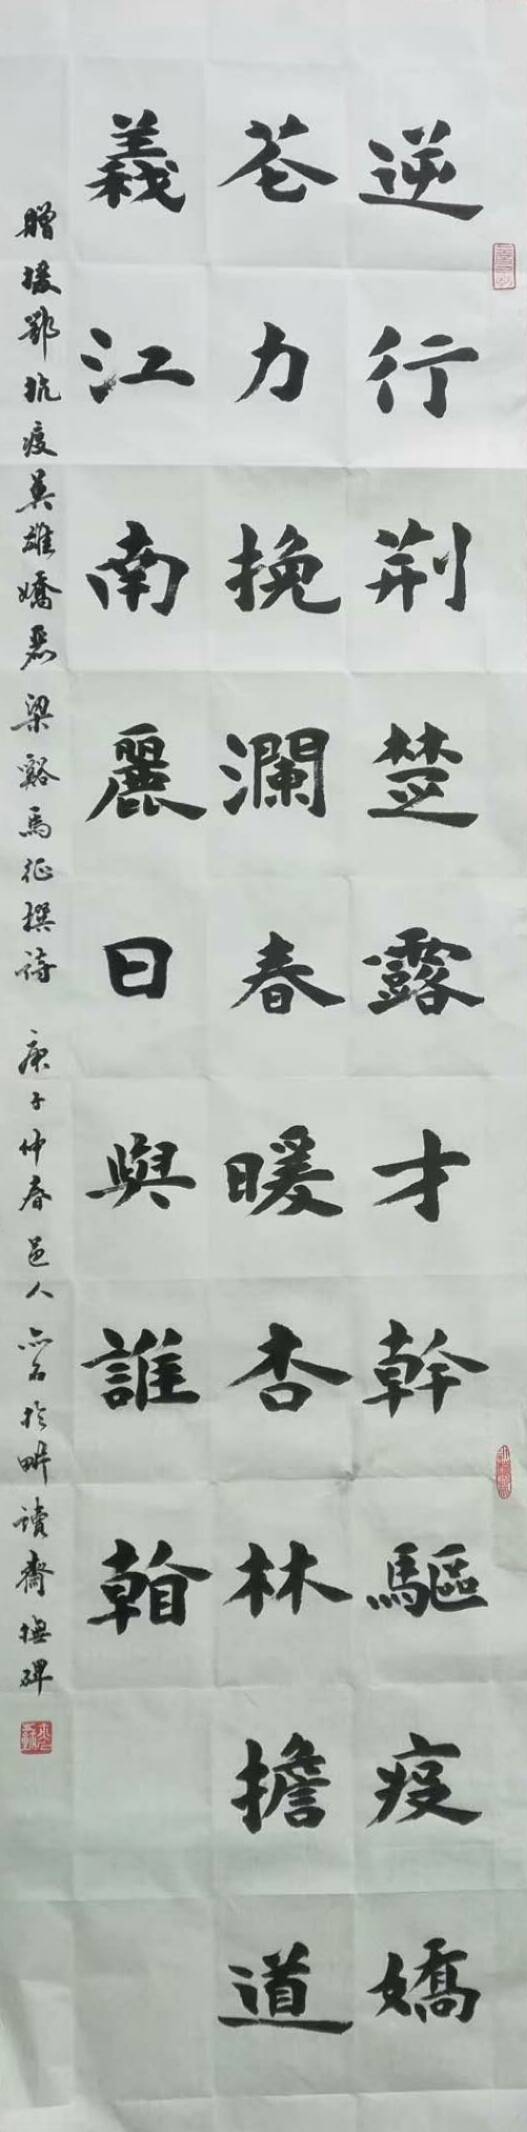 逆行荆楚露才幹驅疫嬌
花力挽瀾春暖杏林擔道
義江南麗日與誰翰
贈援鄂抗疫英雄嬌君 梁谿馬征撰詩 庚子仲春邑人石於畔讀齋撫碑